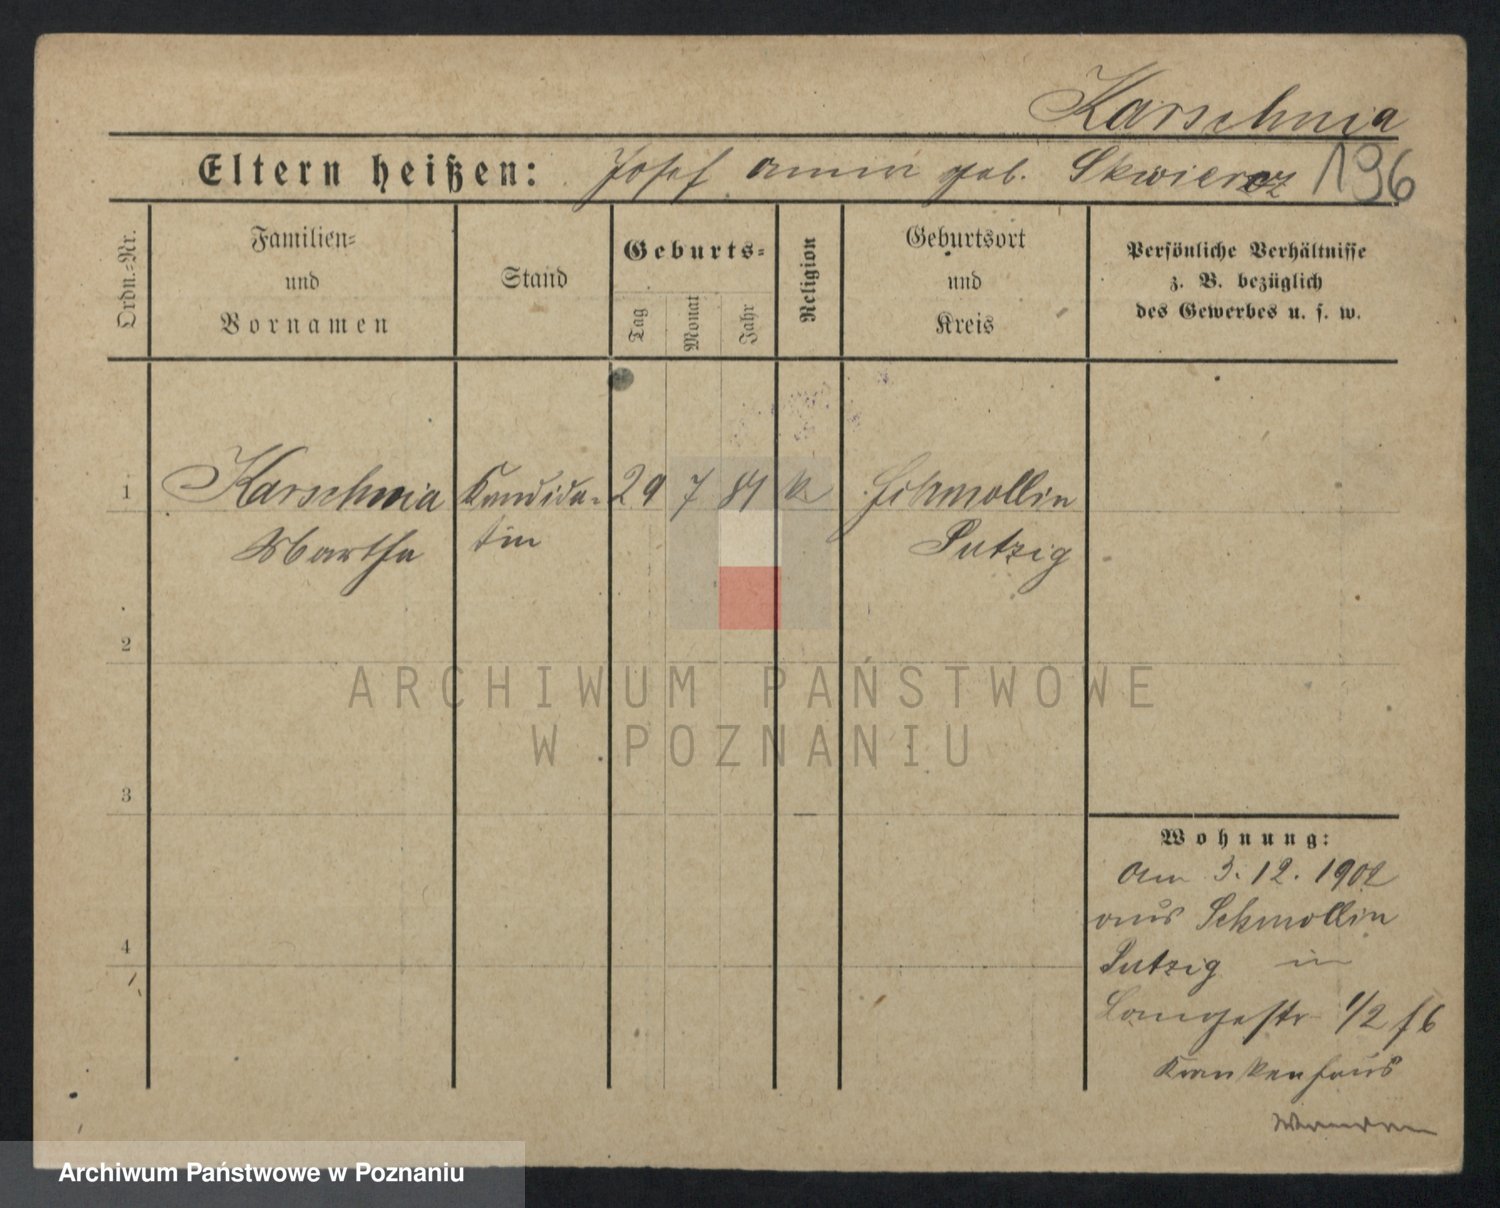 Karschnia
Eltern heißen: Josef Anna geb. Skwiercz 196
Ordn.=Nr.
Familien=
und
Vornamen
Stand
Geburts=
Tag
Monat
Jahr
Religion
Geburtsort
und
Kreis
Persönliche Verhältnisse
z. B. bezüglich
des Gewerbes u. s. w.
1 Karschnia Kandida= 29 7 81 k Schmollin
Martha tin Putzig
2
3
4
Wohnung:
Am 3. 12. 1902
aus Schmollin
Putzig in
Langestr 1/2 f6
Krankenhaus
ARCHIWUM PAŃSTWOWE
W POZNANIU
Archiwum Państwowe w Poznaniu